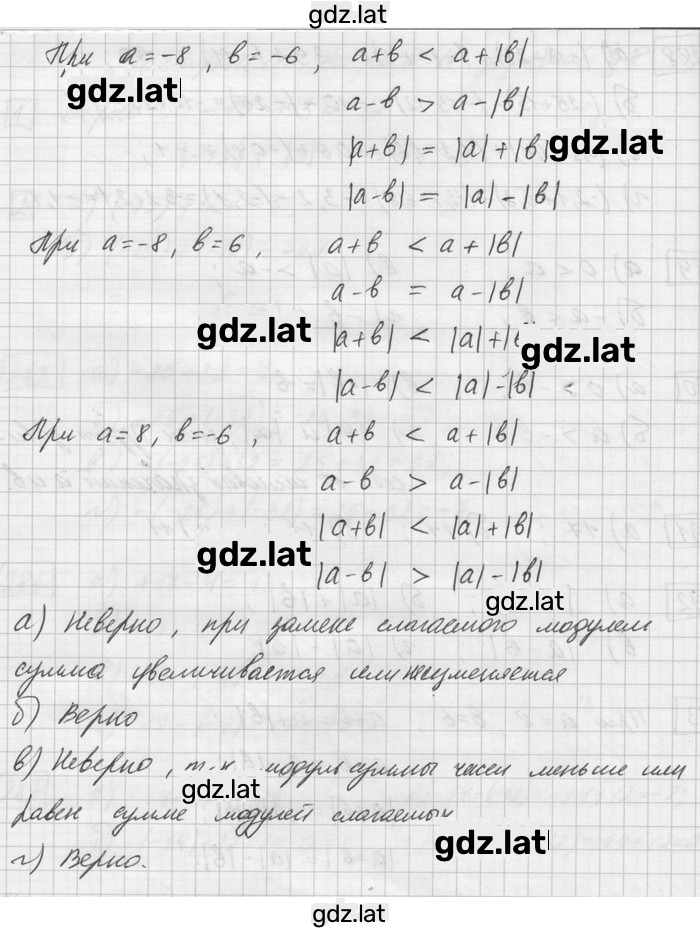 gdz.lat
При a=-8, b=-6, a+b < a+|b|
gdz.lat
a-b > a-|b|
|a+b| = |a|+|b| gdz.lat
|a-b| = |a|-|b|
При a=-8, b=6, a+b < a+|b|
a-b = a-|b|
gdz.lat |a+b| < |a|+|b gdz.lat
|a-b| < |a|-|b| <
При a=8, b=-6, a+b < a+|b|
a-b > a-|b|
|a+b| < |a|+|b|
gdz.lat
|a-b| > |a|-|b|
gdz.lat
а) Неверно, при замене слагаемого модулем
сумма увеличивается или неизменяется
б) Верно
в) Неверно, т.к модуль суммы чисел меньше или
gdz.lat
равен сумме модулей слагаемых
gdz.lat
г) Верно.
gdz.lat